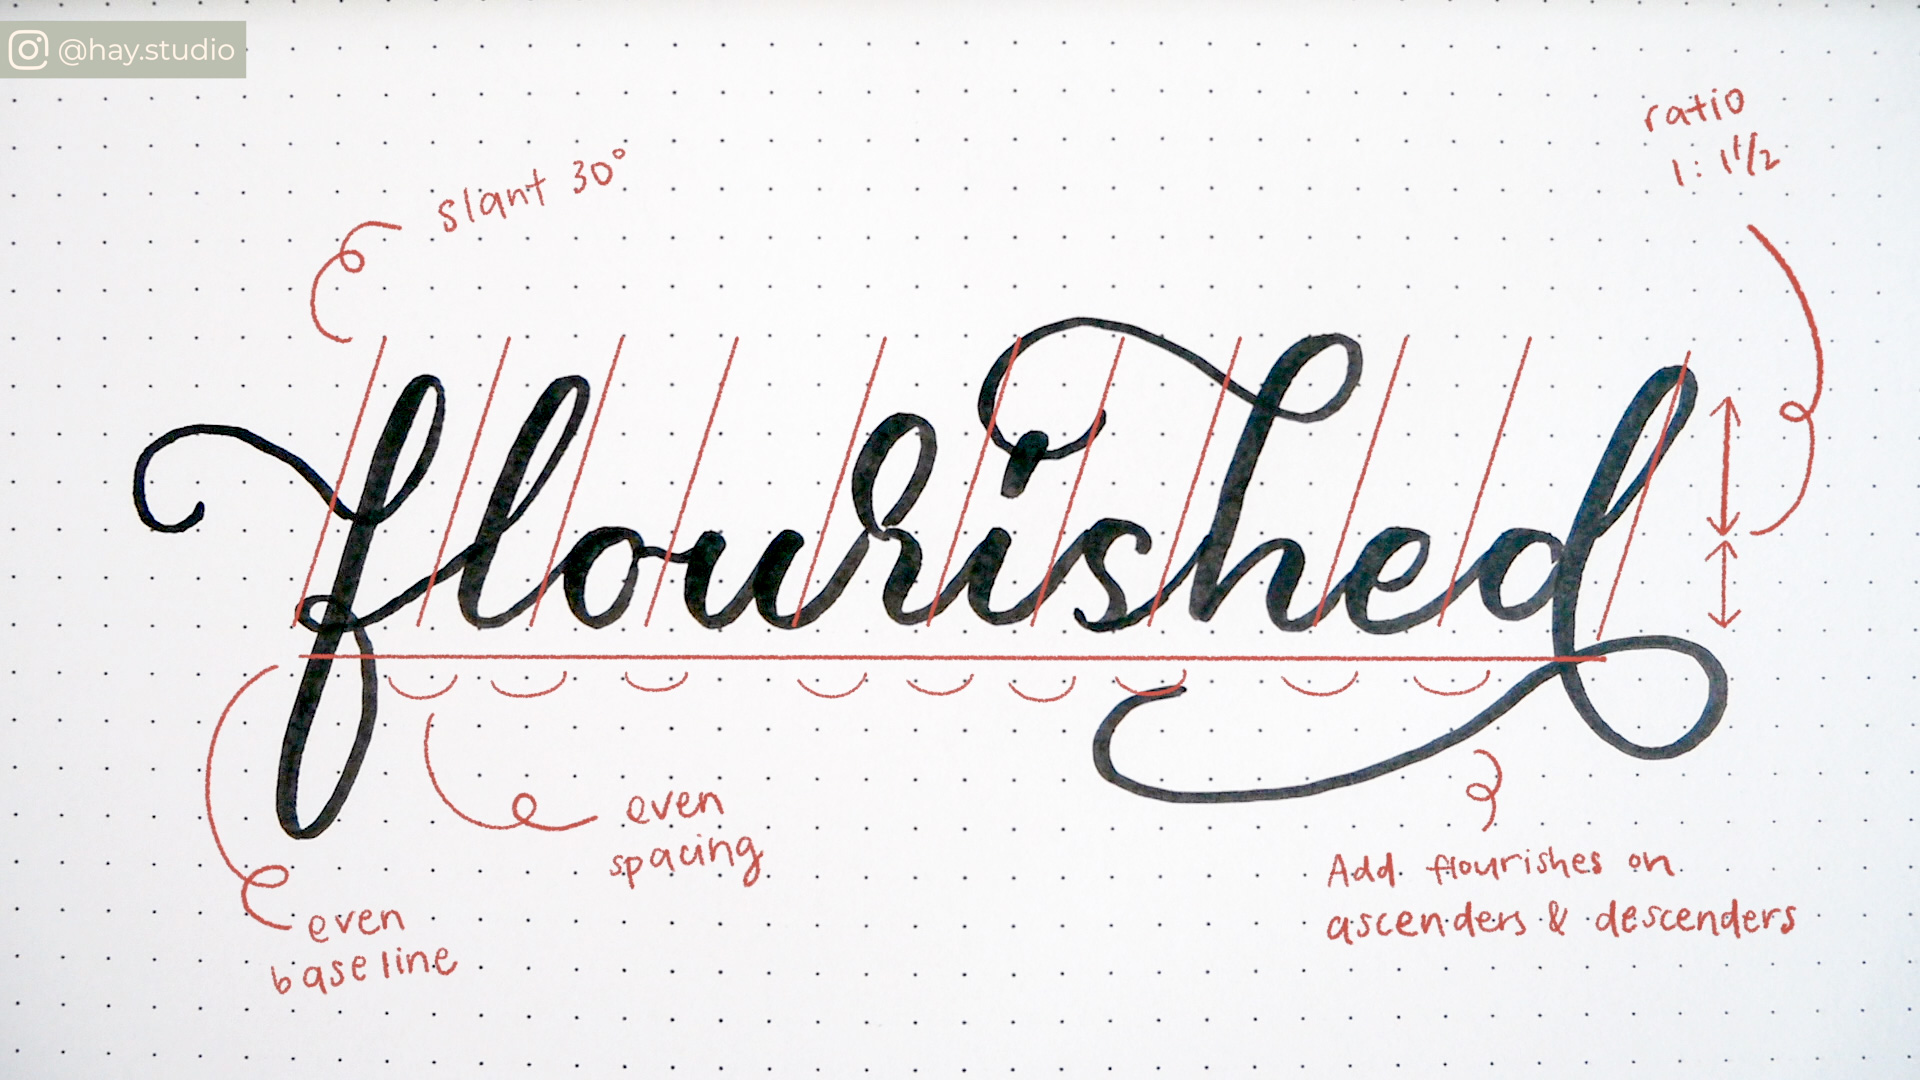 @hay.studio
ratio
1:1 1/2
slant 30°
flourished
even
spacing
Add flourishes on
ascenders & descenders
even
baseline